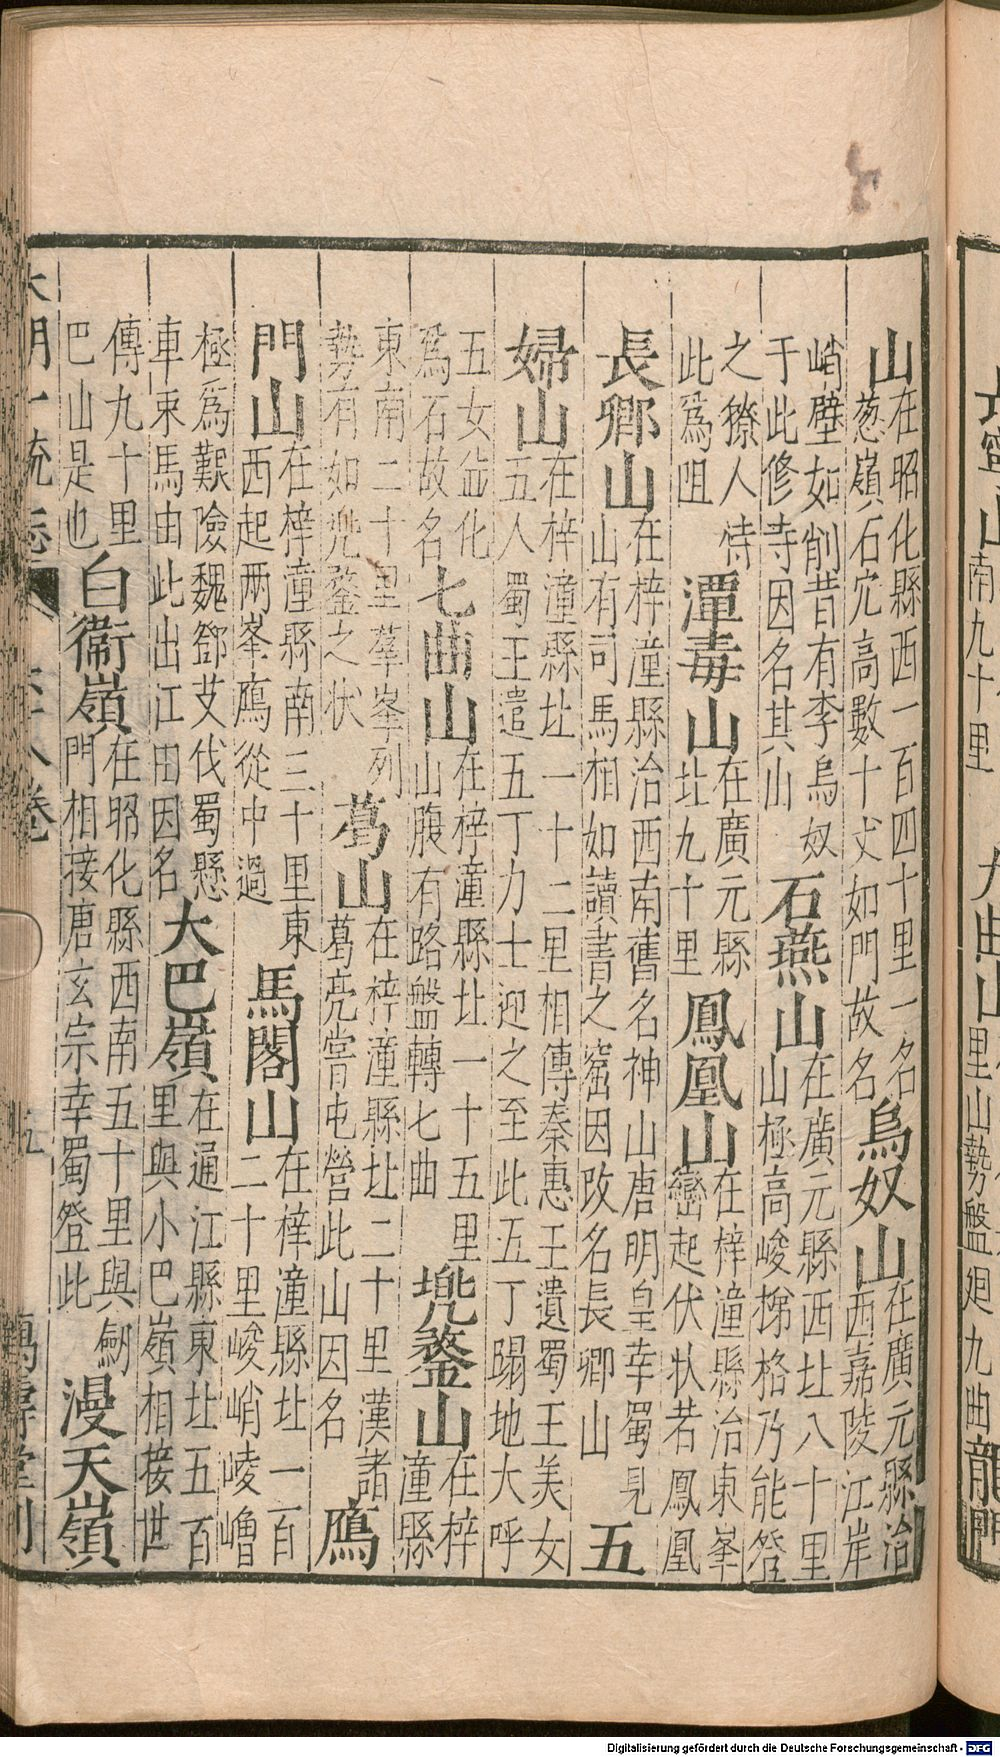 南九十里
里山勢盤廻九曲龍門
山
在昭化縣西一百四十里一名
葱嶺石穴高數十丈如門故名
烏奴山
在廣元縣治
西嘉陵江岸
峭壁如削昔有李烏奴
于此修寺因名其山
石燕山
在廣元縣西北八十里
山極高峻梯格乃能登
之獠人恃
此爲咀
潭毒山
在廣元縣
北九十里
鳳凰山
在梓潼縣治東峯
巒起伏状若鳳凰
長卿山
在梓潼縣治西南舊名神山唐明皇幸蜀見
山有司馬相如讀書之窟因改名長卿山
五
婦山
在梓潼縣北一十二里相傳秦惠王遺蜀王美女
五人蜀王遣五丁力士迎之至此五丁蹋地大呼
五女並化
爲石故名
七曲山
在梓潼縣北一十五里
山腹有路盤轉七曲
兠鍪山
在梓
潼縣
東南二十里羣峯列
勢有如兠鍪之状
葛山
在梓潼縣北二十里漢諸
葛亮甞屯營此山因名
鷹
門山
在梓潼縣南三十里東
西起两峯鷹從中過
馬閣山
在梓潼縣北一百
二十里峻峭崚嶒
極爲艱險魏鄧艾伐蜀懸
車束馬由此出江田因名
大巴嶺
在通江縣東北五百
里與小巴嶺相接世
傳九十里
巴山是也
白衞嶺
在昭化縣西南五十里與劒
門相接唐玄宗幸蜀登此
漫天嶺
大明一統志
五
萬壽堂刊
Digitalisierung gefördert durch die Deutsche Forschungsgemeinschaft - DFG